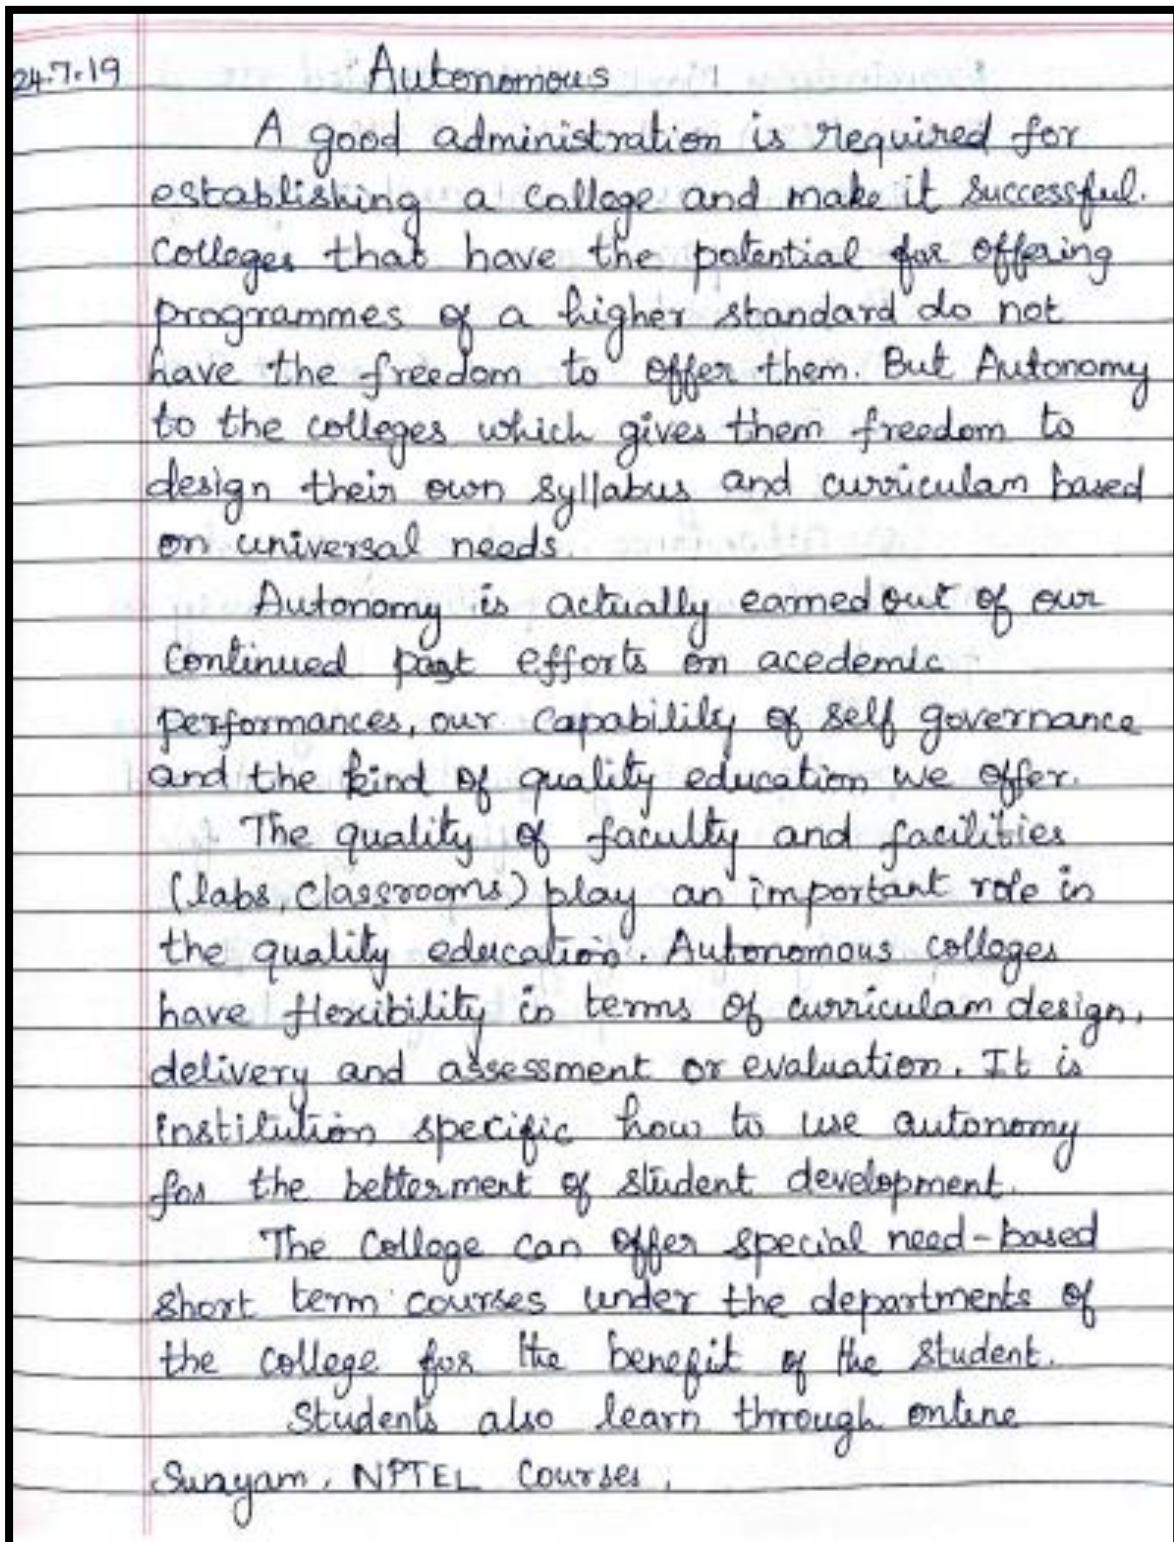 24.7.19 Autonomous
A good administration is required for
establishing a college and make it successful.
Colleges that have the potential for offering
programmes of a higher standard do not
have the freedom to offer them. But Autonomy
to the colleges which gives them freedom to
design their own syllabus and curriculam based
on universal needs
Autonomy is actually earned out of our
continued past efforts on acedemic
performances, our capability of self governance
and the kind of quality education we offer.
The quality of faculty and facilities
(labs, classrooms) play an important role in
the quality education. Autonomous colleges
have flexibility in terms of curriculam design,
delivery and assessment or evaluation. It is
institution specific how to use autonomy
for the betterment of student development.
The College can offer special need-based
short term courses under the departments of
the college for the benefit of the student.
Students also learn through online
Swayam, NPTEL Courses,